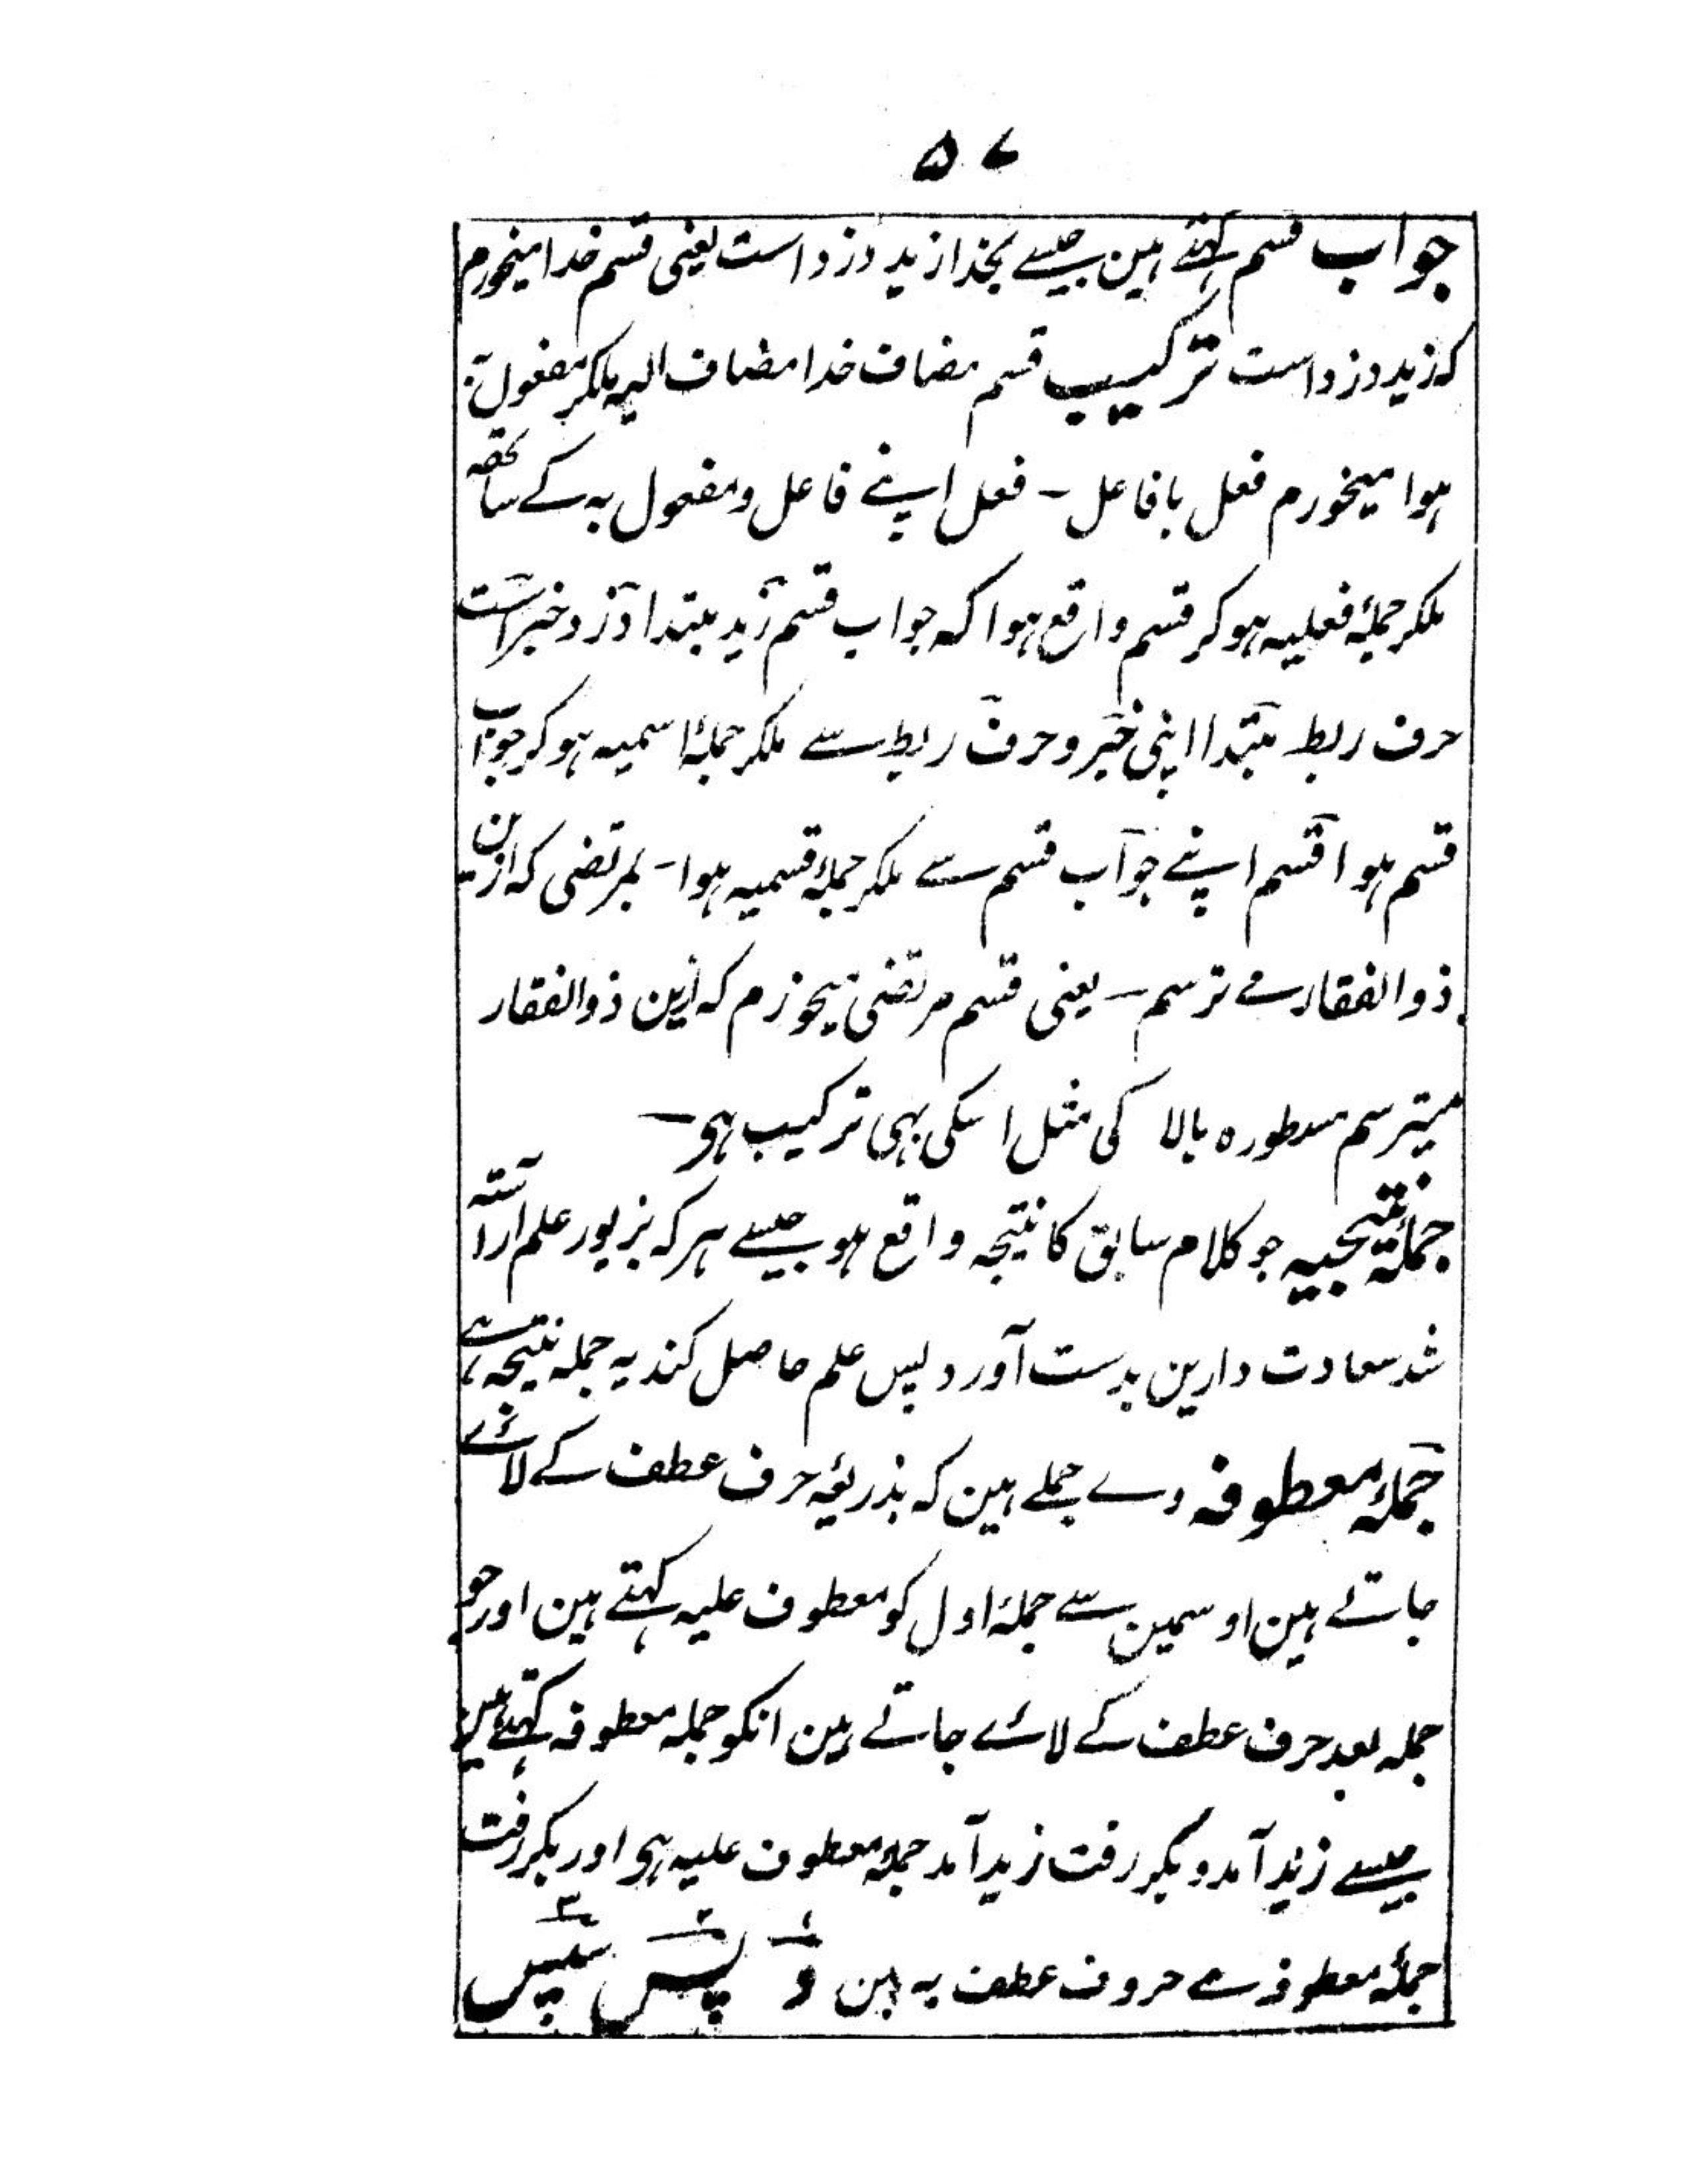 ۵۷
جواب قسم کہتے ہین جیسے بخدا زید دزد است یعنی قسم خدا میخورم
کہ زید دزد است ترکیب قسم مضاف خدا مضاف الیہ ملکر مفعول بہ
ہوا میخورم فعل با فاعل ۔ فعل اپنے فاعل و مفعول بہ کے ساتھ
ملکر جملۂ فعلیہ ہو کر قسم واقع ہوا کہ جواب قسم زید مبتدا دزد خبر است
حرف ربط مبتدا اپنی خبر و حرف ربط سے ملکر جملۂ اسمیہ ہو کر جواب
قسم ہوا قسم اپنے جواب قسم سے ملکر جملۂ قسمیہ ہوا ۔ بمرتضی کہ ازین
ذوالفقار مے ترسم ۔ یعنی قسم مرتضی میخورم کہ ازین ذوالفقار
میترسم سطورہ بالا کی مثل اسکی بہی ترکیب ہی ۔
جملۂ نتیجیہ جو کلام سابق کا نتیجہ واقع ہو جیسے ہر کہ بزیور علم آراستہ
شد سعادت دارین بدست آورد پس علم حاصل کند یہ جملہ نتیجہ ہے
جملۂ معطوفہ وے جملے ہین کہ بذریعۂ حرف عطف کے لائے
جاتے ہین اوسمین سے جملۂ اول کو معطوف علیہ کہتے ہین اور جو
جملہ بعد حرف عطف کے لائے جاتے ہین انکو جملہ معطوفہ کہتے ہین
جیسے زید آمد و بکر رفت زید آمد جملۂ معطوف علیہ ہی اور بکر رفت
جملۂ معطوفہ ہے حروف عطف یہ ہین وَ ۱ پس ۲ سپس ۳